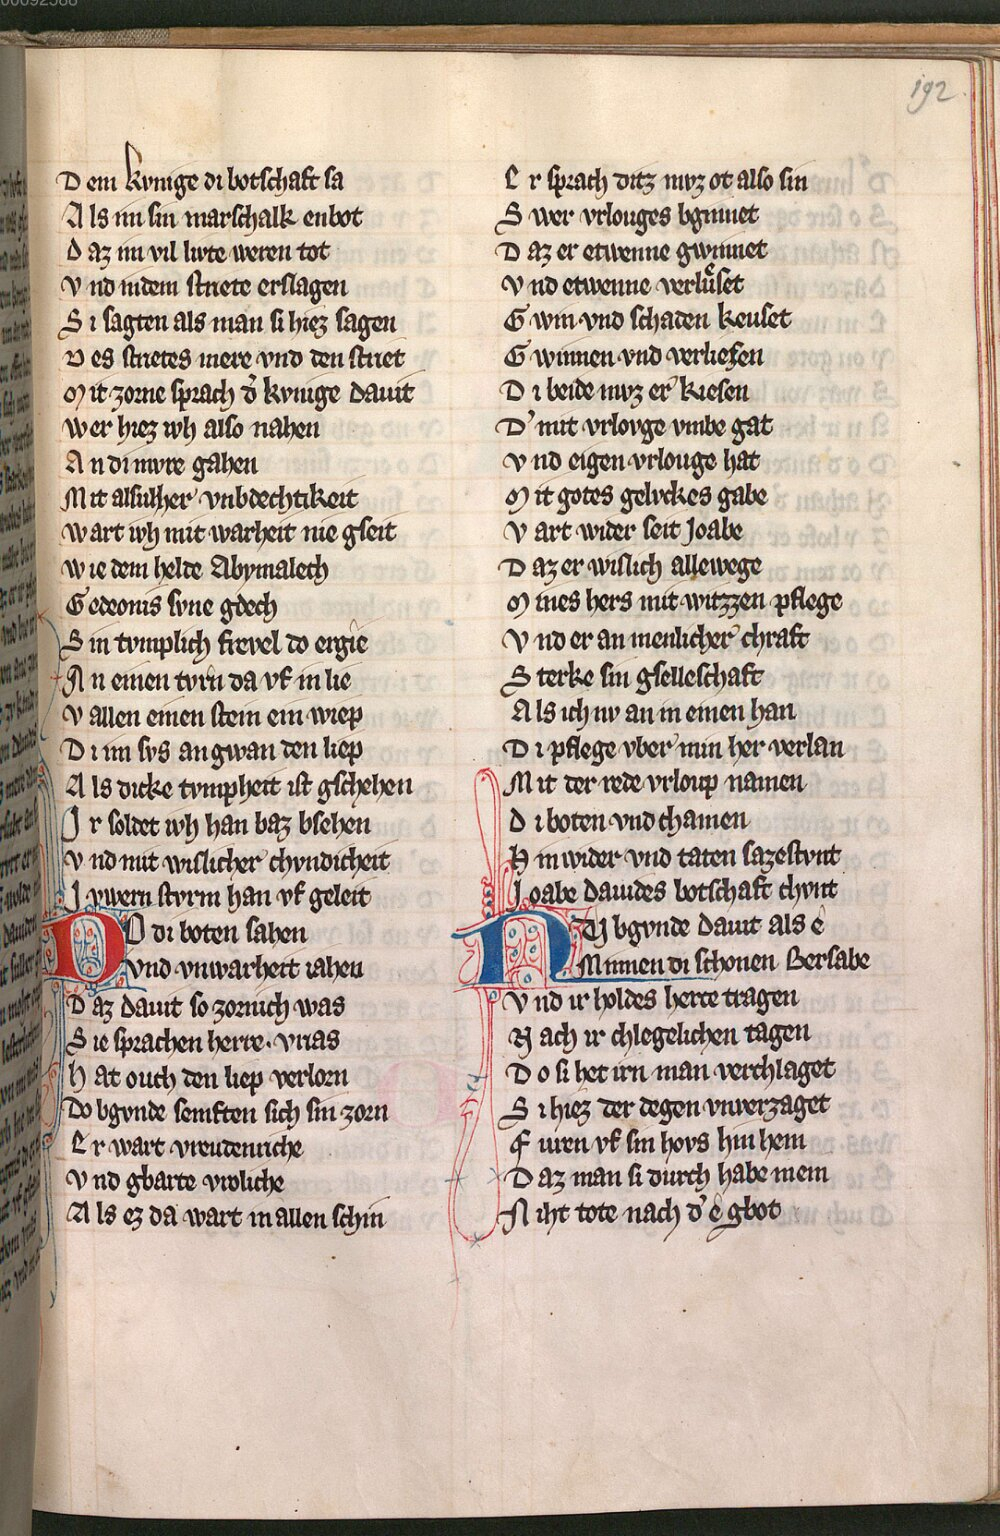 192
Dem kvnige di botschaft sa
Als im sin marschalk enbot
Daz im vil livte weren tot
Vnd indem striete erslagen
Si sagten als man si hiez sagen
Des strietes mere vnd den striet
Mit zorne sprach d' kvnige Dauit
Wer hiez ivh also nahen
An di mvre gahen
Mit alsulher vnbdechtikeit
Wart ivh mit warheit nie gseit
Wie dem helde Abymalech
Gedeonis svne gdech
Sin tvmplich frevel do ergie
An einen tvrn da vf in lie
Vallen einen stein ein wiep
Di im svs an gwan den liep
Als dicke tvmpheit ist gschehen
Ir soldet ivh han baz bsehen
Vnd mit wislicher chvndicheit
Ivwern stvrm han vf geleit
DO di boten sahen
Vnd vnwarheit iahen
Daz dauit so zornich was
Sie sprachen herre. vrias
Hat ouch den liep verlorn
Do bgvnde semften sich sin zorn
Er wart vreudenriche
Vnd gbarte vroliche
Als ez da wart in allen schin
Er sprach ditz mvz ot also sin
Swer vrlouges bginnet
Daz er etwenne gwinnet
Vnd etwenne verlůset
Gwin vnd schaden keuset
Gwinnen vnd verliesen
Di beide mvz er kiesen
D' mit vrlovge vmbe gat
Vnd eigen vrlouge hat
Mit gotes gelvckes gabe
Vart wider seit Joabe
Daz er wislich allewege
Mines hers mit witzzen pflege
Vnd er an menlicher chraft
Sterke sin gselleschaft
Als ich nv an in einen han
Di pflege vber min her verlan
Mit der rede vrloup namen
Di boten vnd chamen
Hin wider vnd taten sazestvnt
Joabe dauides botschaft chvnt
NV bgvnde dauit als e
Minnen di schonen Bersabe
Vnd ir holdes herce tragen
Nach ir chlegelichen tagen
Do si het irn man verchlaget
Si hiez der degen vnverzaget
Furen vf sin hovs hin hein
Daz man si durch habe mein
Niht tote nach d' e gbot